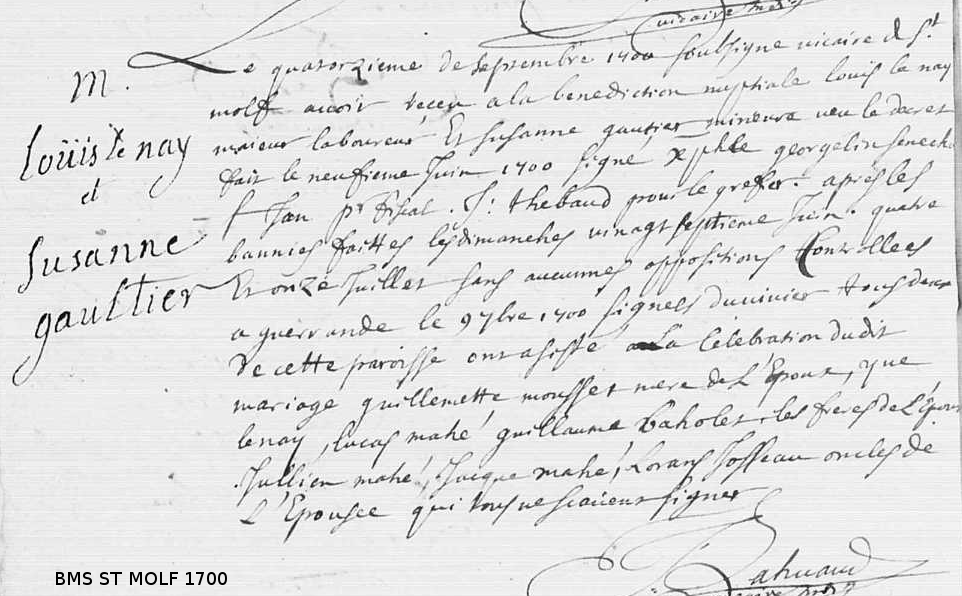 vicaire
M.
Loüis le nay
et
Susanne
gaultier
Le quatorzieme de Septembre 1700 soubsigne vicaire de St
molf avoir receu a la benediction nuptiale louis le nay
majeur laboureur Et Susanne gautier mineure veu le decret
fait le neufieme Juin 1700 signé georgelin senechal
Jan pr fiscal. S: thebaud pour le grefer. apres les
bannies faittes les dimanches vinagt septieme Juin. quatre
Et onze Juillet sans aucunnes oppositions Controllees
a guerrande le 9 7bre 1700 signees duvivier tous deux
De cette paroisse ont asisté a la Celebration dudit
mariage guillemette mousset mere de L'Epoux,
lenay, lucas mahé guillaume Baholet, les freres de L'Epoux
Jullien mahé, Jacque mahé, Lorans Josseau oncles de
L'Epousee qui tous ne scavent signer
BMS ST MOLF 1700